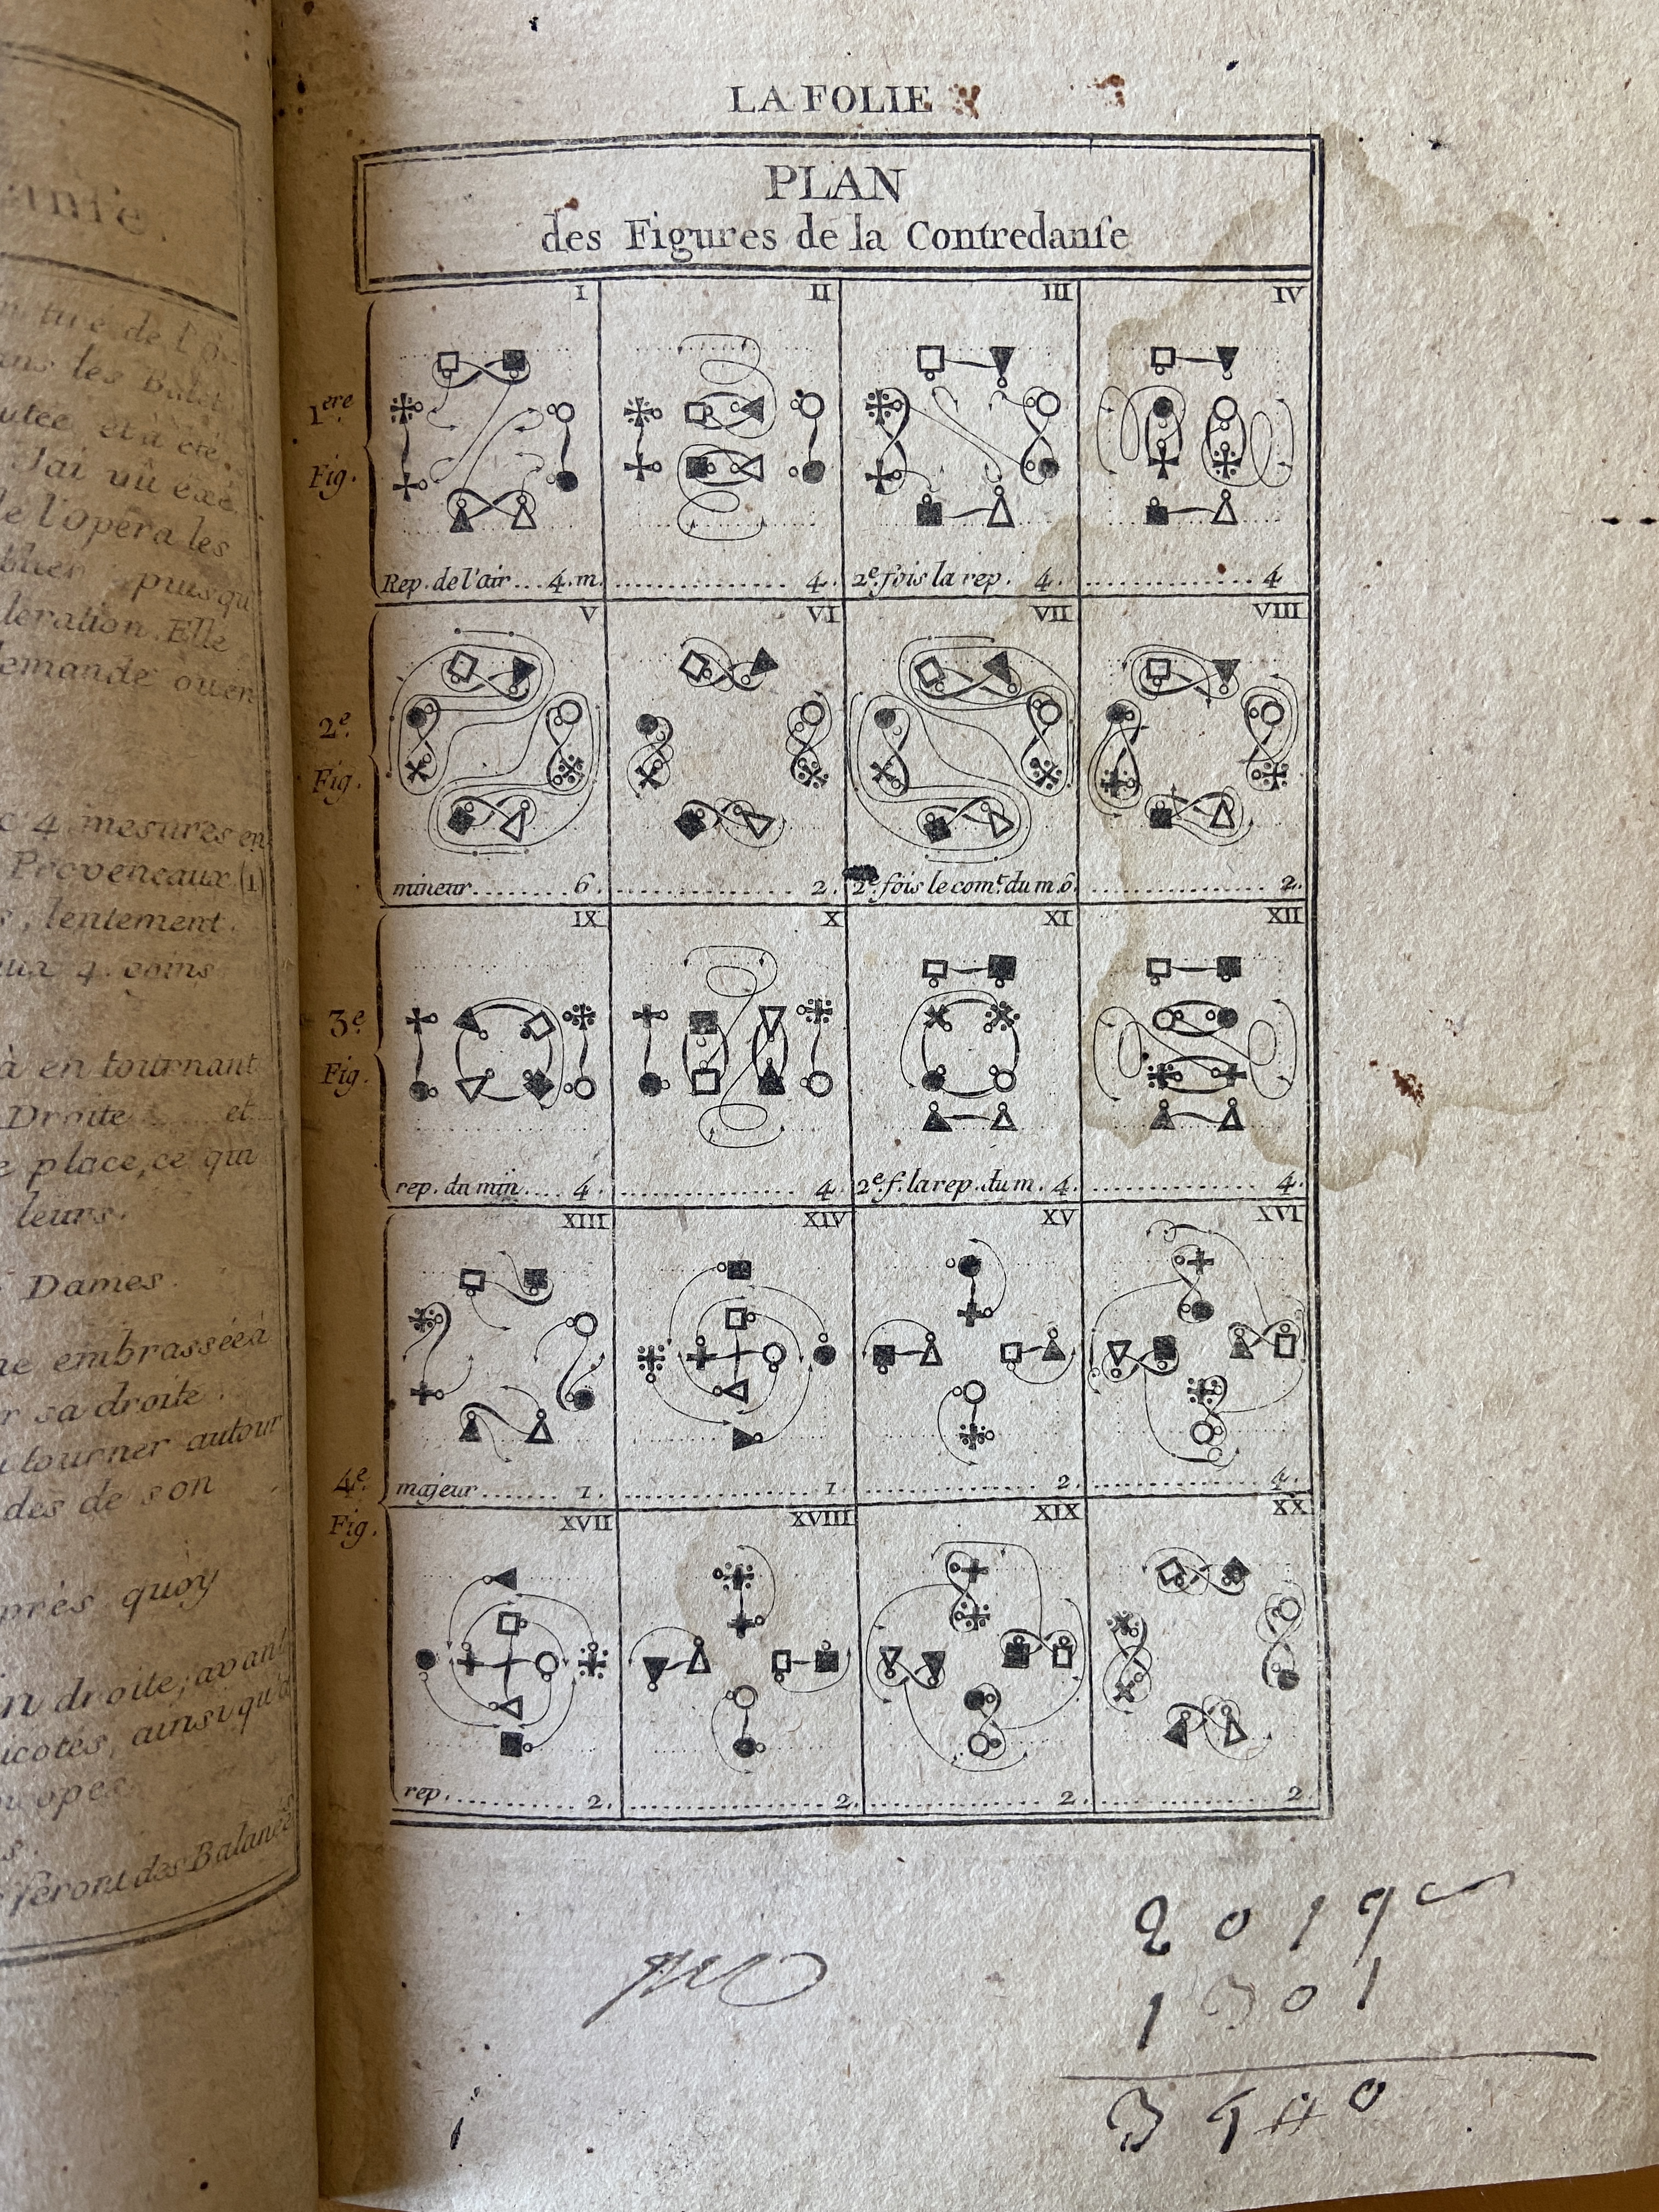 anſe
tiré de l'O-
ans les Balets
utée, et a été
J'ai vû exé
de l'opera les
blier puisqu
leration. Elle
lemande ou en
4 mesures en
Proveneaux (1)
lentement.
aux 4 coins
à en tournant
Droite et
place, ce qui
leurs.
Dames.
embrassée à
sa droite.
tourner autour
des de son
près quoy
n droite; avant
icotés, ainsi qu'à
feront des Balancé
LA FOLIE
PLAN
des Figures de la Contredanſe
1ere Fig.
I II III IV
Rep. de l'air... 4. m. ............ 4. 2e. fois la rep. 4. ............ 4
2e. Fig.
V VI VII VIII
mineur........ 6. ............ 2. 2e. fois le comt. du m. 6. ............ 2.
3e. Fig.
IX X XI XII
rep. du min.... 4. ............ 4. 2e. f. la rep. du m. 4. ............ 4.
4e. Fig.
XIII XIV XV XVI
majeur........ 1. ............ 1. ............ 2. ............ 4.
XVII XVIII XIX XX
rep. ............ 2. ............ 2. ............ 2. ............ 2
2019
1301